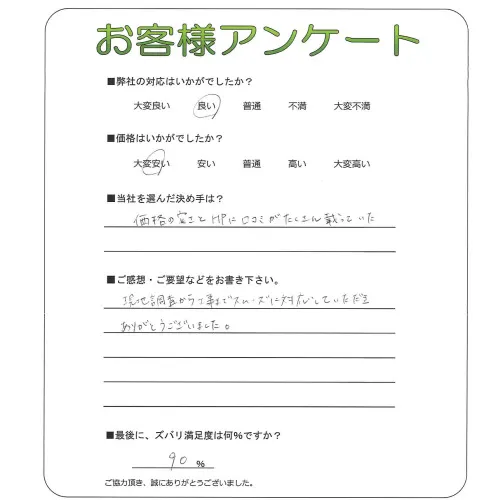 お客様アンケート
■弊社の対応はいかがでしたか？
大変良い 良い 普通 不満 大変不満
■価格はいかがでしたか？
大変安い 安い 普通 高い 大変高い
■当社を選んだ決め手は？
価格の安さとHPに口コミがたくさん載っていた
■ご感想・ご要望などをお書き下さい。
現地調査から工事までスムーズに対応していただき
ありがとうございました。
■最後に、ズバリ満足度は何%ですか？
90 %
ご協力頂き、誠にありがとうございました。